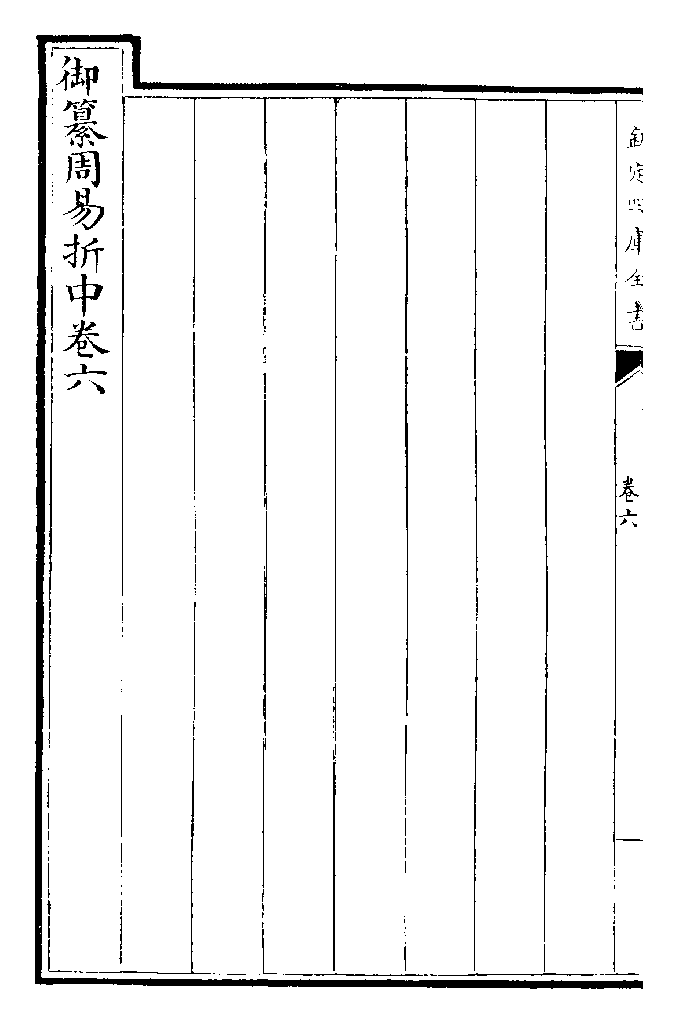 欽定四庫全書
卷六
御纂周易折中卷六